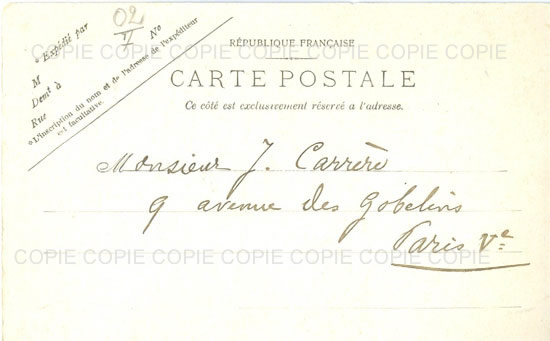 02
V
* Expédié par N°
M
Demt à
Rue
*L'inscription du nom et de l'adresse de l'expéditeur
est facultative.
RÉPUBLIQUE FRANÇAISE
CARTE POSTALE
Ce côté est exclusivement réservé a l'adresse.
COPIE COPIE COPIE COPIE COPIE COPIE COPIE
Monsieur J. Carrère
9 avenue des Gobelins
Paris Ve
COPIE COPIE COPIE COPIE COPIE COPIE COPIE